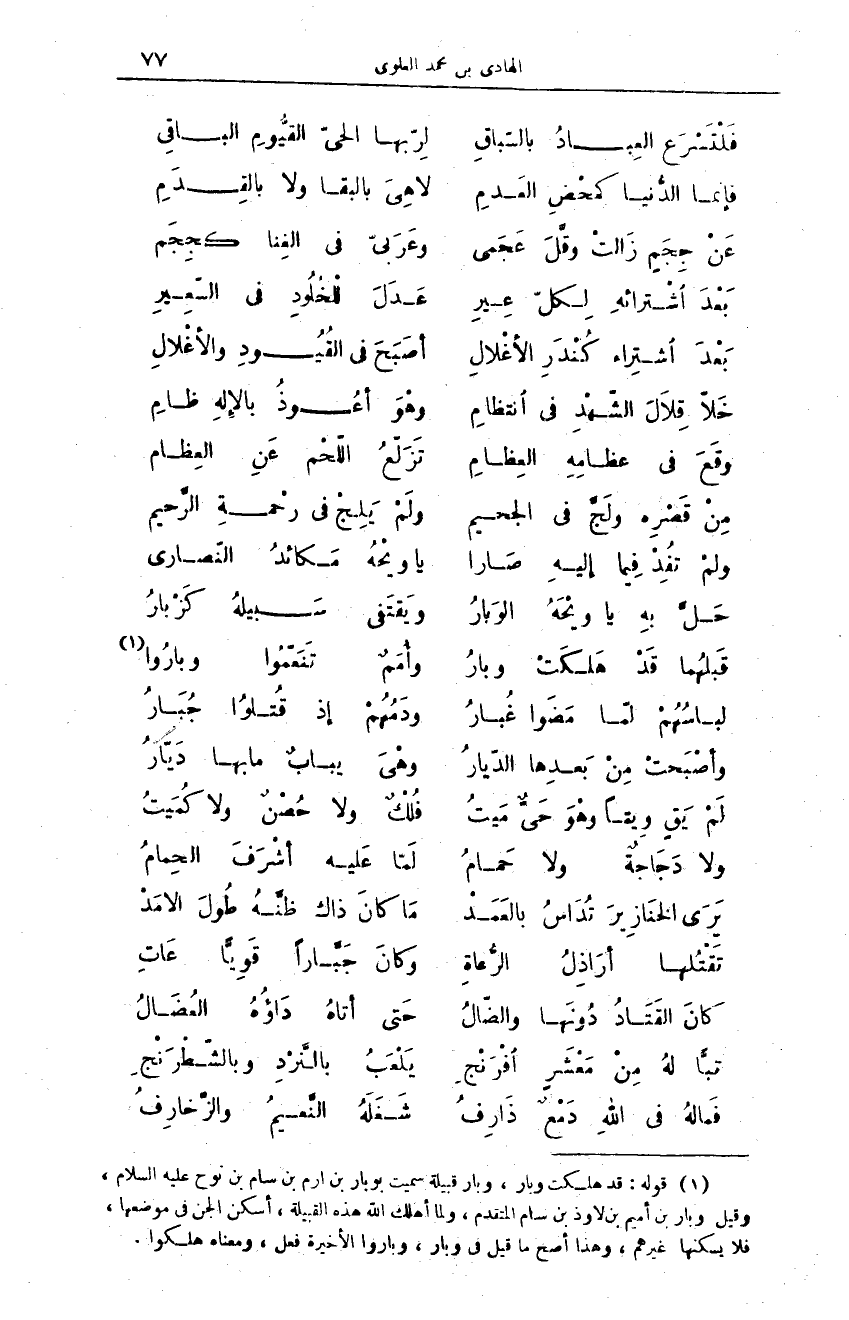 الهادى بن محمد العلوى ٧٧
فَلْتَسْرَعِ العِبـــادُ بالسّباقِ لِرَبّهـا الحىّ القيُّومِ البـاقِى
فإنمـا الدُّنيـا كمَحْضِ العَـدمِ لاهِىَ بالبقـا ولا بالقِـــدَمِ
عَنْ حِجَمٍ زَالتْ وقَّلَ عَجَمى وعَرَبىّ فى الفِنا كحِجَمِ
بَعْدَ اُشْـترائهِ لِـكلّ عِـيرِ عَـدَلَ لْلخُلُودِ فى السّعِـيرِ
بَعْدَ اُشـتِراء كُنْدَرِ الأغْلالِ أصَبَحَ فى القُيُـــودِ والأغْلالِ
خَلاّ قِلاَلَ الشّهْدِ فى اُنتظامِ وهْوَ أعُـــوذُ بالإلهِ ظـامِ
وقَعَ فى عظـامِهِ العِظـامِ تَزَلّعُ اللّحْم عَنِ العِظـام
مِنْ قَصْرِه ولَجَّ فى الجحيـمِ ولَمْ يَلِجْ فى رحْمـــةِ الرَّحيمِ
ولمْ تفُدْ فِيما إليـهِ صَـارا ياويْحُهُ مَـكائدُ النّصـارى
حَـلَّ بهِ يا ويْحَهُ الوَبارُ ويَقتَفى سَـــبيلهُ كَزْبارُ
قَبلهُما قَدْ هَلـكَتْ وبارُ وأُمَمٌ تَنَعّمُوا وبارُوا(١)
لبـاسُهُمْ لمّـا مَضَوا غُبـارُ ودَمُهُمْ إذ قُتـلوُا جُبَـارُ
وأصْبَحتْ مِنْ بَعـدِها الدّيارُ وهْىَ يبـابٌ مابهـا دَيّارُ
لَمْ يَقِ ويقـاً وهْوَ حَىٌّ مَيتُ فُلْكٌ ولا حُصْنٌ ولا كُمَيتُ
ولا دَجَاجةٌ ولا حَمـامُ لَمّا عَليـه أشْرَفَ الحِمامُ
يَرَى الخنَازيرَ تُدَاسُ بالعَمَـدْ مَا كانَ ذاك ظنَّـهُ طُولَ الامَدْ
تَقْتُلهـا أرَاذِلُ الرُّعاةِ وكانَ جَبَّـاراً قَويًّا عَاتِ
كانَ القَتَـادُ دُونَهـا والضّالُ حَتى أتاهُ دَاؤُهُ العُضَـالُ
تبـًّا لهُ مِنْ مَعْشَرٍ اُفْرَنْجِ يَلْعَبُ بالنَّرْدِ وبالشّطْرَنْجِ
فَمالهُ فى اللهِ دَمْعٌ ذَارِفُ شَـغَلهُ النَّعيـمُ والزَّخارِفُ
(١) قوله : قد هلـكت وبار ، وبار قبيلة سميت بوبار بن ارم بن سام بن نوح عليه السلام ،
وقيل وبار بن أميم بن لاوذ بن سام المتقدم ، ولما أهلك الله هذه القبيلة ، أسكن الجن فى موضعها ،
فلا يسكنها غيرهم ، وهذا أصح ما قيل فى وبار ، وباروا الأخيرة فعل ، ومعناه هلـكوا .